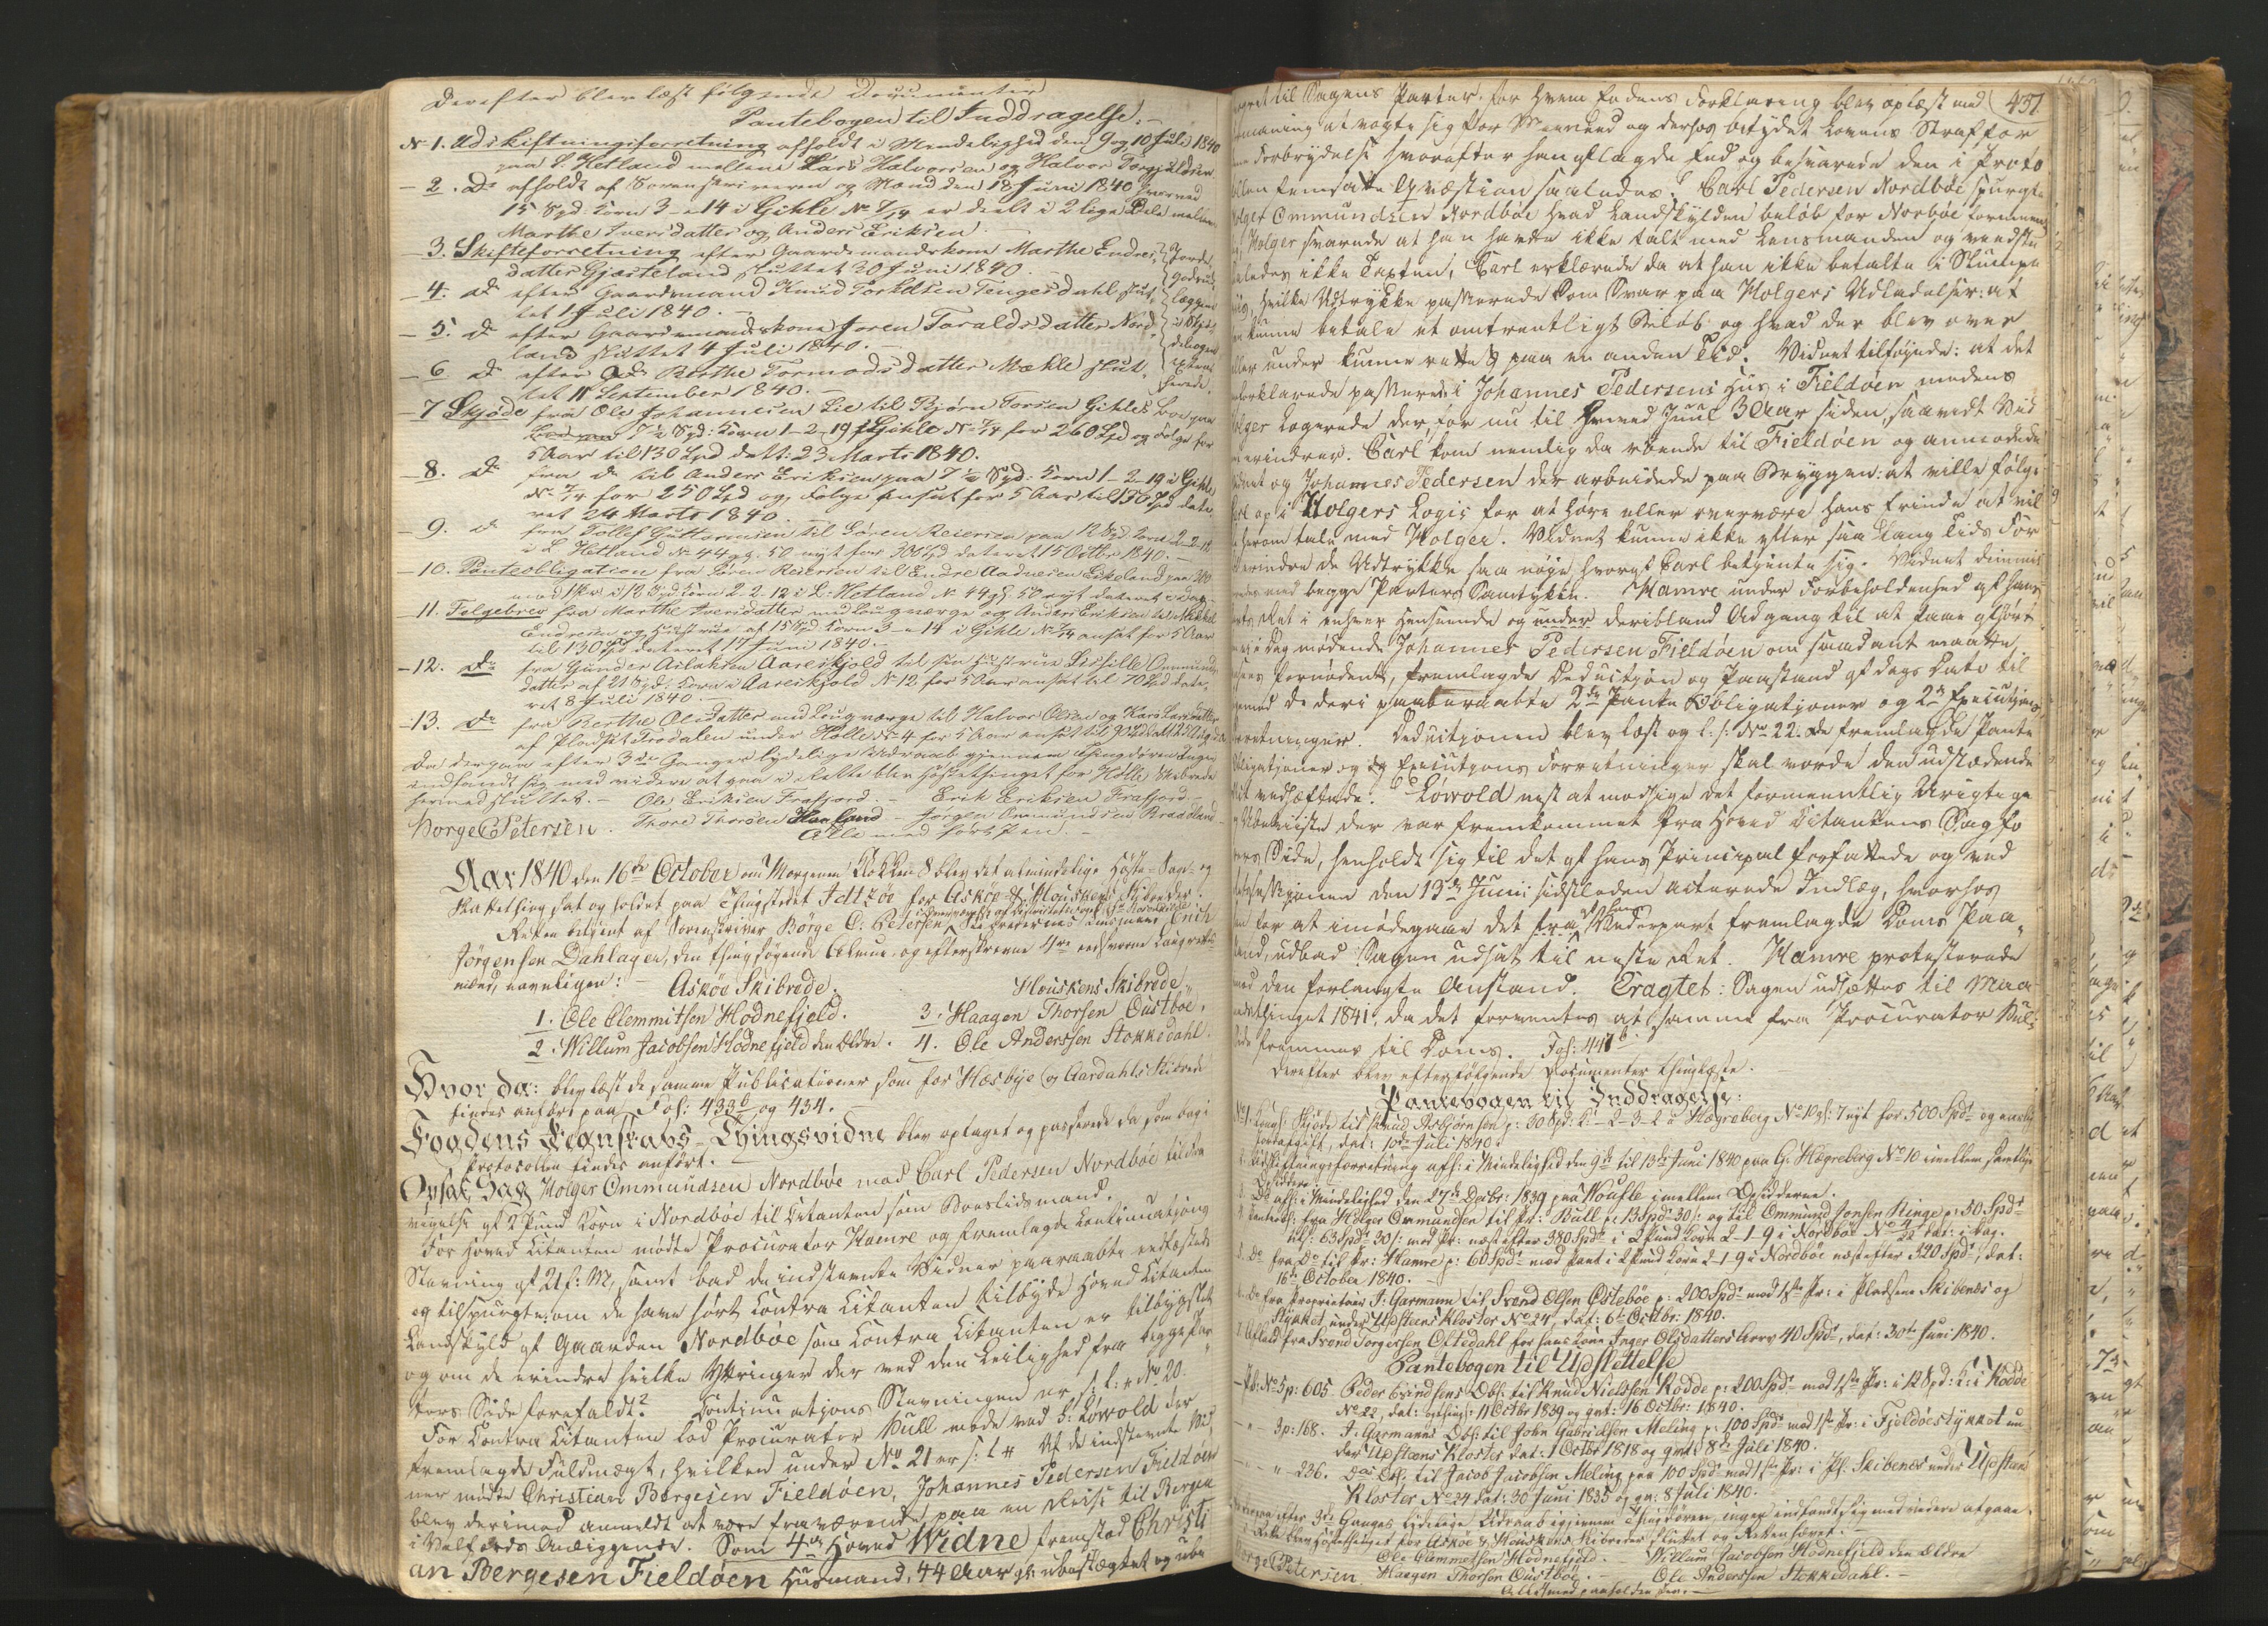 Derefter blev læst følgende Documenter
Pantebogen til Inddragelse:-
No 1. Udskiftningsforretning afholdt i Mindelighed den 9 og 10 Juli 1840
paa L. Hetland mellem Lars Halvorsen og Halvor Torgjulsen
- 2. Do afholdt af Sorenskriveren og Mænd den 18 Juni 1840 hvorved
15 Spd: Korn 3-"-14 i Gihle No 7/14 er deelt i 2 lige Dele mellem
Marthe Iversdatter og Anders Eriksen.
- 3. Skifteforretning efter Gaardmandskone Marthe Endres-
datter Gjerteland sluttet 20 Juni 1840.
- 4. do efter Gaardmand Knud Torkelsen Tengesdahl, slut-
tet 1 Juli 1840.
- 5. do efter Gaardmandskone Joren Taraldsdatter Nord-
land sluttet 4 Juli 1840.
- 6 do efter do Berthe Tormodsdatter Mæhle slut-
tet 11 September 1840.
Jorde-
godsud-
læggene
i Skifte-
protocollen
- 7 Skjøde fra Ole Johannesen Lie til Bjørn Torsen Gihles
7 1/2 Spd: Korn 1-2-19 i Gihle No 7/14 for 260 Spd og Følge for
5 Aar til 130 Spd dat: 23 Marts 1840.
- 8. do fra do til Anders Eriksen paa 7 1/2 Spd: Korn 1-2-19 i Gihle
No 7/14 for 250 Spd og Følge ansat for 5 Aar til 130 Spd date-
ret 24 Marts 1840.
- 9. do fra Tollef Guttormsen til Søren Reiersen paa 12 Spd Korn 2-2-12
i L. Hetland No 44 gl. 50 nyt for 300 Spd dateret 15 Octbr 1840.-
- 10. Panteobligation fra Søren Reiersen til Endre Aadnesen Eikeland paa 300
mod 1ste Pr: i 12 Spd: Korn 2-2-12 i L: Hetland No 44 gl. 50 nyt dateret i Dag
- 11. Følgebrev fra Marthe Iversdatter med Laugværge og Anders Eriksen til Mikkel
Endresen og Hustrue af 15 Spd Korn 3-"-14 i Gihle No 7/14 ansat for 5 Aar
til 130 Spd dateret 17 Juni 1840.
- 12. Do fra Gunder Aslaksen Aareskjold til sin Hustrue Sissille Ommunds-
datter af 21 Spd: Korn i Aareskjold No 12 for 5 Aar ansat til 70 Spd date-
ret 8 Juli 1840
- 13. Do fra Berthe Olsdatter med Laugværge til Halvor Olsen og Kari Larsdatter
af Pladset Frodalen under Hølle No 4 for 5 Aar ansat til
Da derpaa efter 3de Ganges lydelige Udraab gjennem Thingdøren Ingen
indfandt sig med videre at gaa i Rette blev Høstethinget for Hølle Skibrede
hermed sluttet.- Ole Eriksen Frafjord.- Erik Eriksen Frafjord.-
Børge C Petersen. Thore Thorsen Haaland - Jørgen Ommundsen Kraddeland
Alle med ført Pen.-
Aar 1840 den 16de October om Morgenen Klokken 8 blev det almindelige Høste-Sag- og
Skattething sat og holdet paa Thingstedet Idtzøe for Askøe & Houskens Skibreder
Retten betjent af Sorenskriver Børge C: Petersen, Skibredernes Lensmand Erich
Jørgensen Dahlagen, den thingsøgende Almue og efterskrevne 4re eedsvorne Laugrettes
mænd, navnligen:-
Askøe Skibrede.
1. Ole Clemmitsen Hodnefjeld.
2. Willum Jacobsen Hodnefjeld den Eldre.
Houskens Skibrede
3. Haagen Thorsen Oustbøe.
4. Ole Anderssen Stokkedahl.
Hvor da: blev læst de samme Publicationer som for Hæsbye og Aardahls Skibrede
findes anført paa Fol: 433b og 434.-
Fogdens Regnskabs-Thingsvidne blev optaget og passerede da som bag i
Protocollen findes anført.-
Opsat Sag Holger Ommundsen Nordbøe mod Carl Pedersen Nordbøe til
vigelse af 2 Pund Korn i Nordbøe til Citanten som Boeslidsmand.
For Hoved Citanten mødte Procurator Hamre og fremlagde Continuations
Stevning af 21 f: M, samt bad de indstevnte Vidner paaraabte
og tilspurgte om de have hørt Contra Citanten tilbyde Hoved Citanten
Landskyld af Gaarden Nordbøe som Contra Citanten er tilbygslet
og om de erindre hvilke Yttringer der ved den Leilighed fra begge Par
ters Side forefaldt? Continuations Stevningen er s: l: No 20.
For Contra Citanten lod Procurator Bull møde ved S: Lowold der
fremlagde Fuldmagt, hvilken under No 21 er s: l # Af de indstevnte Vid
ner mødte Christian Børgesen Fieldøen, Johannes Pedersen Fieldøen
blev derimod anmeldt at være fraværende paa en Reise til Bergen
i Velfærds Anliggende. Som 4de Hoved Widne fremstod Christi
an Børgesen Fieldøen Huusmand, 44 Aar gl: ubeslægtet og ube
437.
til Sagens Parter for hvem Eedens Forklaring blev oplæst med
maning at vogte sig for Meeneed og derhos betydet Lovens Straf for
Forbrydelse hvorefter han aflagde Eed og besvarede den i Proto
collen fremsatte Qvæstion saaledes: Carl Pedersen Nordbøe spurgte
Holger Ommundsen Nordbøe hvad Landskylden beløb for Norbøe
Holger svarede at han havde ikke talt med Lensmanden og vidste
saaledes ikke Taxten, Carl erklærede da at han ikke betalte i
hvilke Udtrykke passerede som Svar paa Holgers Udladelser: at
kunne betale et omtrentligt Beløb og hvad der blev over
eller under kunne rettes paa en anden Tid. Vidnet tilføyede: at det
forklarede passerede i Johannes Pedersens Huus i Fieldøen medens
Holger logerede der, før nu til Juul 3 Aar siden, saavidt Vid
net erindrer. Carl kom nemlig da roende til Fieldøen og anmodede
Vidnet og Johannes Pedersen der arbeidede paa Bryggen: at ville følge
Carl op i Holgers Logis for at høre eller overvære hans Erinde at vil
tale med Holger. Vidnet kunne ikke efter saa lang Tids For
erindre de Udtrykke saa nøye hvoraf Carl betjente sig. Vidnet dimmit
med begge Parters Samtykke. Hamre under Forbeholdenhed af hans
Ret i enhver Henseende og under deriblandt Adgang til at faae afhørt
i Dag mødende Johannes Pedersen Fieldøen om saadant maatte
fornødent, fremlagde Deductjon og Paastand af Dags Dato til
med de deri paaberaabte 2de Pante Obligationer og 2de Executjons
Forretninger. Deductjonen blev læst og l: s: No 22. De fremlagde Pante
Obligatjoner og Executjons Forretninger skal vorde den udstædende
Act vedhæftede. Lowold nest at modsige det formeentlig Urigtige
der var fremkommet fra Hoved Citantens Sagfø
rers Side, henholdt sig til det af hans Principal forfattede og ved
den 13de Juni sidstleden acterede Indlæg, hvorhos
for at imødegaae det fra Hans Vederpart fremlagde Doms Paa
stand, udbad Sagen udsat til neste Ret. Hamre protesterede
mod den forlangte Anstand. Eragtet: Sagen udsættes til Maa
nedsthinget 1841, da det forventes at samme fra Procurator Bulls
Side fremmes til Doms. Fol: 441b.
Derefter blev efterfølgende Documenter thinglæste.
Pantebogen til Inddragelse:
No 1. Kongl: Skjøde til Knud Asbjørnsen p: 30 Spd: K: - 2-3-2 i Hægreberg No 10 gl: 7 nyt for 500 Spd: og
Jordafgift, dat: 10de Juli 1840.
2. Udskiftningsforretning afh: i Mindelighed den 9de til 13de Juni 1840 paa G: Hægreberg No 10 imellem samtlige
Opsiddere.
3. Do afh: i Mindelighed den 27de Decbr: 1839 paa Woufle imellem Opsidderne.
4. Panteobl: fra Holger Ommundsen til Pr: Bull p: 13 Spd 30 s: og til Ommund Jonsen Ringe p: 50 Spd
tils: 63 Spd: 30 s: mod Pr: næst efter 380 Spd i 2 Pund Korn 2-1-9 i Nordbøe No 4/22 dat: i Dag.
5. Do fra Do til Pr: Hamre p: 60 Spd mod Pant i 2 Pund Korn 2-1-9 i Nordbøe næst efter 320 Spd, dat:
16de October 1840.-
6. Do fra Proprietair J: Garmann til Svend Olsen Østebøe p: 200 Spd mod 1ste Pr: i Pladsene Skibenes og
Stykket under Udsteens Kloster No 24, dat: 6te Octbr: 1840.
7. Afkald fra Svend Torgersen Oltedahl for hans Kone Inger Olsdatters Arv 40 Spd, dat: 30te Juni 1840.
Pantebogen til Udslettelse
- Pb: No 5 p: 605 Peder Eivindsens Obl: til Knud Nielssen Rodde p: 200 Spd mod 1ste Pr: i 12 Spd: K: i Rodde
No 22, dat: og thingl: 11 Octbr 1839 og qvt: 16 Octbr: 1840.
- " - 3 p: 168. J: Garmanns Obl: til John Gabrielsen Meling p: 100 Spd mod 1ste Pr: i Fjeldøestykket un
der Udsteens Kloster dat: 1 Octbr 1818 og qvt: 8de Juli 1840.
- " - " - 236. Do Obl: til Jacob Jacobsen Meling paa 100 Spd mod 1ste Pr: i Pl: Skibenes under Udsteens
Kloster No 24 dat: 30 Juni 1835 og qv: 8 Juli 1840.
efter 3de Ganges lydelige Udraab igjennem Thingdøren, ingen indfandt sig med videre at gaae
i Rette blev Høstethinget for Askøe & Houskens Skibreder sluttet og Retten hævet.-
Børge C Petersen Ole Clemmetsen Hodnefjeld.- Willum Jacobsen Hodnefjeld den Eldre
Haagen Thorsen Oustbøe.- Ole Anderssen Stokkedahl.-
Alle med paaholden Pen.-